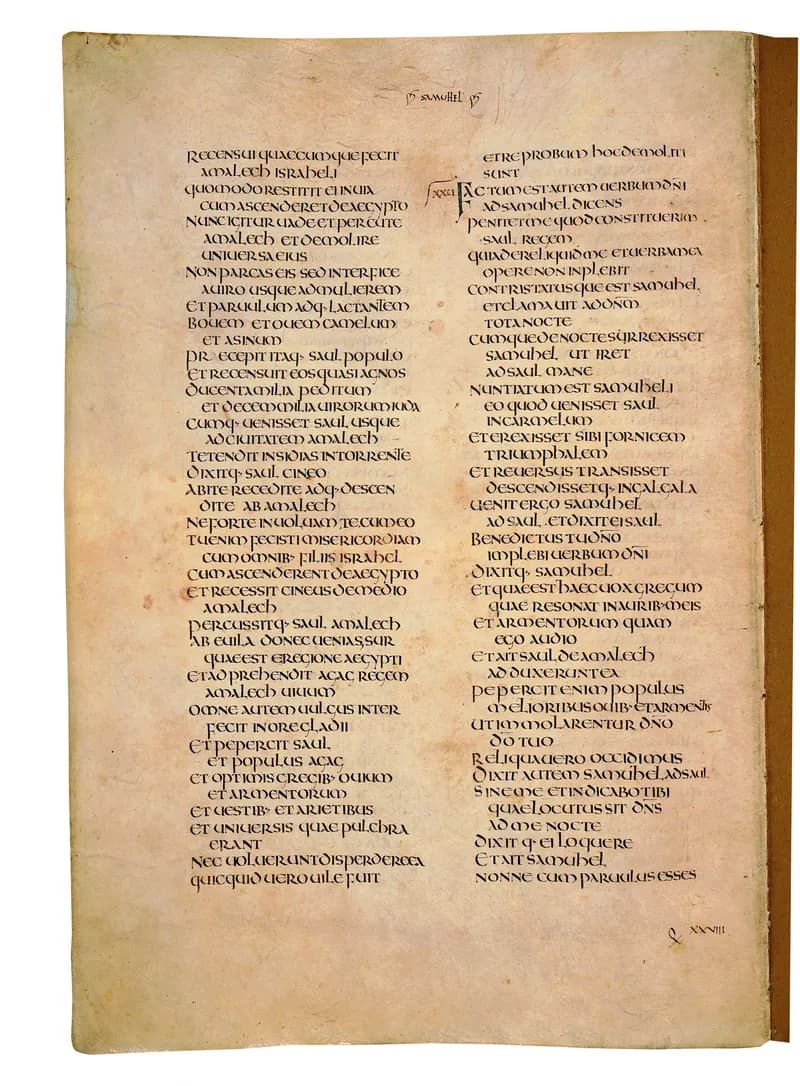 SAMUHEL
RECENSUI QUAECUMQUE FECIT
AMALECH ISRAHELI
QUOMODO RESTITIT EI IN UIA
CUM ASCENDERET DE AEGYPTO
NUNC IGITUR UADE ET PERCUTE
AMALECH ET DEMOLIRE
UNIUERSA EIUS
NON PARCAS EIS SED INTERFICE
A UIRO USQUE AD MULIEREM
ET PARUULUM ADQ· LACTANTEM
BOUEM ET OUEM CAMELUM
ET ASINUM
PRAECEPIT ITAQ· SAUL POPULO
ET RECENSUIT EOS QUASI AGNOS
DUCENTA MILIA PEDITUM
ET DECEM MILIA UIRORUM IUDA
CUMQ· UENISSET SAUL USQUE
AD CIUITATEM AMALECH
TETENDIT INSIDIAS IN TORRENTE
DIXITQ· SAUL CINEO
ABITE RECEDITE ADQ· DESCEN
DITE AB AMALECH
NE FORTE INUOLUAM TE CUM EO
TU ENIM FECISTI MISERICORDIAM
CUM OMNIB· FILIIS ISRAHEL
CUM ASCENDERENT DE AEGYPTO
ET RECESSIT CINEUS DE MEDIO
AMALECH
PERCUSSITQ· SAUL AMALECH
AB EUILA DONEC UENIAS SUR
QUAE EST E REGIONE AEGYPTI
ET ADPREHENDIT AGAG REGEM
AMALECH UIUUM
OMNE AUTEM UULGUS INTER
FECIT IN ORE GLADII
ET PEPERCIT SAUL
ET POPULUS AGAG
ET OPTIMIS GREGIB· OUIUM
ET ARMENTORUM
ET UESTIB· ET ARIETIBUS
ET UNIUERSIS QUAE PULCHRA
ERANT
NEC UOLUERUNT DISPERDERE EA
QUICQUID UERO UILE FUIT
ET REPROBUM HOC DEMOLITI
SUNT
XXVI FACTUM EST AUTEM UERBUM DNI
AD SAMUHEL DICENS
PENITET ME QUOD CONSTITUERIM
SAUL REGEM
QUIA DERELIQUID ME ET UERBA MEA
OPERE NON INPLEBIT
CONTRISTATUSQUE EST SAMUHEL
ET CLAMAUIT AD DNM
TOTA NOCTE
CUMQUE DE NOCTE SURREXISSET
SAMUHEL UT IRET
AD SAUL MANE
NUNTIATUM EST SAMUHELI
EO QUOD UENISSET SAUL
IN CARMELUM
ET EREXISSET SIBI FORNICEM
TRIUMPHALEM
ET REUERSUS TRANSISSET
DESCENDISSETQ· IN GALGALA
UENIT ERGO SAMUHEL
AD SAUL ET DIXIT EI SAUL
BENEDICTUS TU DNO
IMPLEBI UERBUM DNI
DIXITQ· SAMUHEL
ET QUAE EST HAEC UOX GREGUM
QUAE RESONAT IN AURIB· MEIS
ET ARMENTORUM QUAM
EGO AUDIO
ET AIT SAUL DE AMALECH
ADDUXERUNT EA
PEPERCIT ENIM POPULUS
MELIORIBUS OUIB· ET ARMENTIS
UT IMMOLARENTUR DNO
DO TUO
RELIQUA UERO OCCIDIMUS
DIXIT AUTEM SAMUHEL AD SAUL
SINE ME ET INDICABO TIBI
QUAE LOCUTUS SIT DNS
AD ME NOCTE
DIXITQ· EI LOQUERE
ET AIT SAMUHEL
NONNE CUM PARUULUS ESSES
Q XXVIII